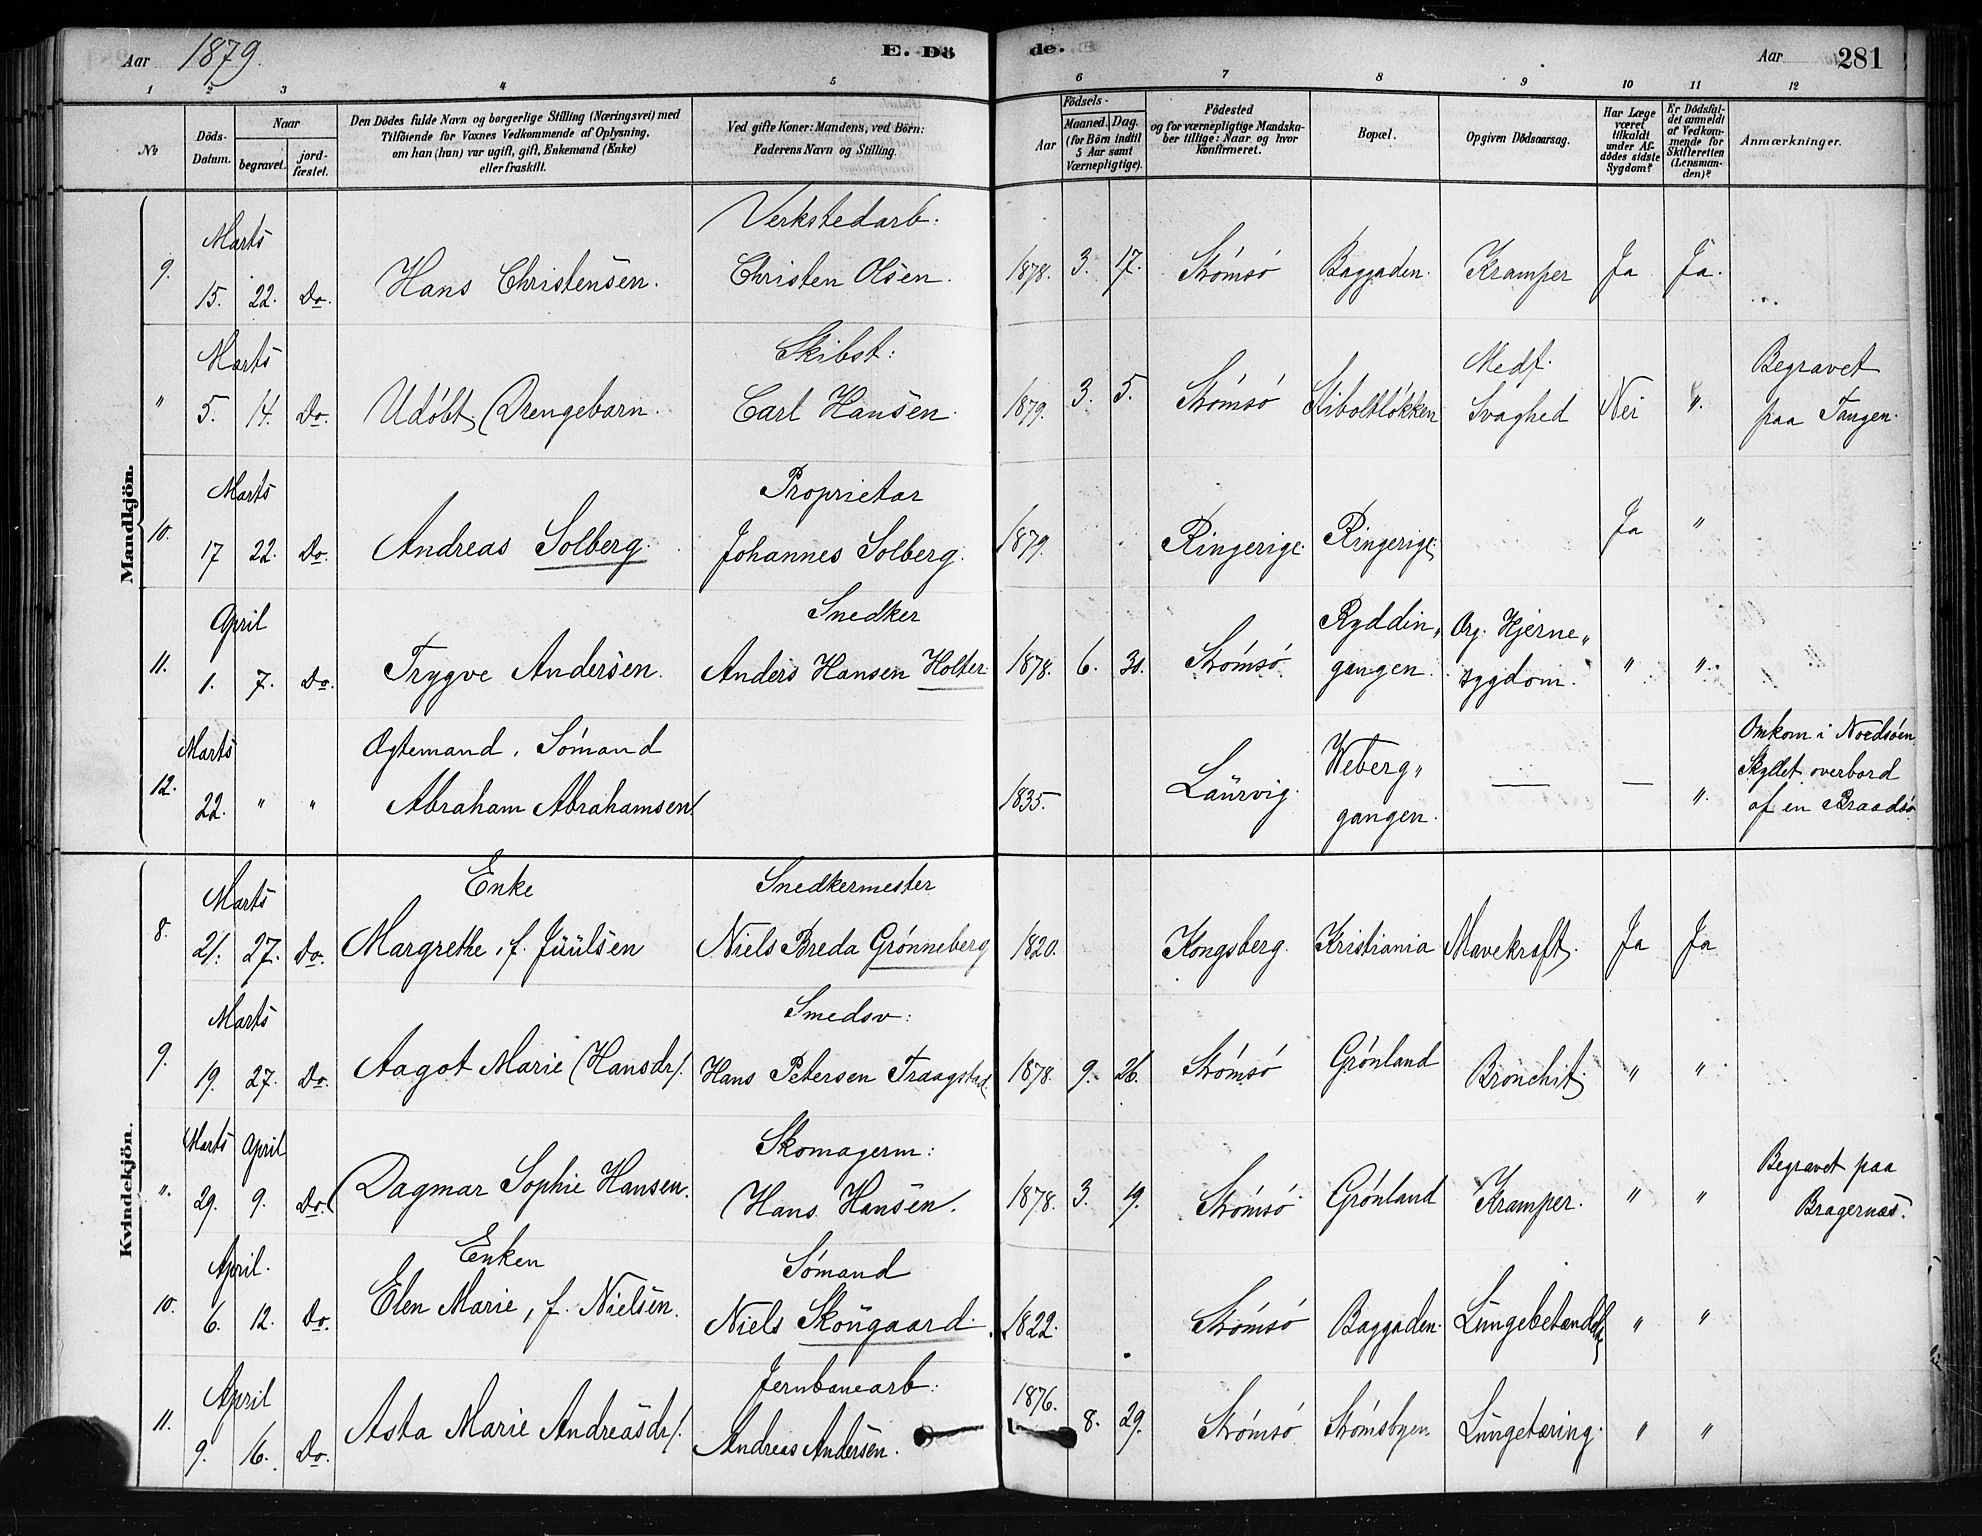 Aar 1879. E. Dö de. Aar 281
1 2 3 4 5 6 7 8 9 10 11 12
No
Döds-Datum.
Naar
begravet.
jord-fæstet.
Den Dödes fulde Navn og borgerlige Stilling (Næringsvei) med
Tilföiende for Voxnes Vedkommende af Oplysning,
om han (hun) var ugift, gift, Enkemand (Enke)
eller fraskilt.
Ved gifte Koner: Mandens, ved Börn:
Faderens Navn og Stilling.
Födsels-
Aar
Maaned. Dag.
(for Börn indtil
5 Aar samt
Værnepligtige).
Födested
og for værnepligtige Mandska-
ber tillige: Naar og hvor
konfirmeret.
Bopæl.
Opgiven Dödsaarsag.
Har Læge
været
tilkaldt
under Af-
dödes sidste
Sygdom?
Er Dödsfal-
det anmeldt
af Vedkom-
mende for
Skifteretten
(Lensman-
den)?
Anmærkninger.
Mandkjön.
Marts Verkstedarb:
9. 15. 22. Do. Hans Christensen. Christen Olsen. 1878. 3. 17. Strømsø Baggaden. Kramper Ja Ja.
Marts Skibst: Medf. Begravet
" 5. 14. Do. Udøbt Drengebarn. Carl Hansen. 1879. 3. 5. Strømsø Stiboltløkken Svaghed Nei ". paa Tangen.
Marts Proprietær
10. 17 22. Do. Andreas Solberg. Johannes Solberg. 1879. Ringerige. Ringerige. Ja "
April Snedker Ryddin" Org. Hjerne"
11. 1. 7. Do. Trygve Andersen. Anders Hansen Holter. 1878. 6. 30. Strømsø. gangen. sygdom. " ".
Marts Ægtemand. Sømand Weberg" Omkom i Nordsøen.
Skyllet overbord
12. 22. " " Abraham Abrahamsen. 1835. Laurvig. gangen. — — ". af en Braadsø.
Kvindekjön.
Marts Enke Snedkermester
8. 21. 27. Do. Margrethe, f. Juulsen Niels Breda Grønneberg 1820. Kongsberg. Kristiania Mavekræft. Ja Ja
Marts Smedsv:
9. 19. 27. Do. Aagot Marie (Hansdr). Hans Petersen Traagstad. 1878. 9. 26. Strømsø Grønland Bronchit. " "
Marts April Skomagerm: Begravet paa
". 29. 9. Do. Dagmar Sophie Hansen. Hans Hansen. 1878. 3. 9. Strømsø. Grønland Kramper. " " Bragernæs.
April. Enken Sømand
10. 6. 12. Do. Elen Marie, f. Nielsen. Niels Skougaard. 1822. Strømsø Baggaden. Lungebetændelse " "
April Jernbanearb: 1876.
11. 9. 16. Do. Asta Marie Andreasdr. Andreas Andersen. 8. 29. Strømsø Strømsbyen Lungetæring. " "